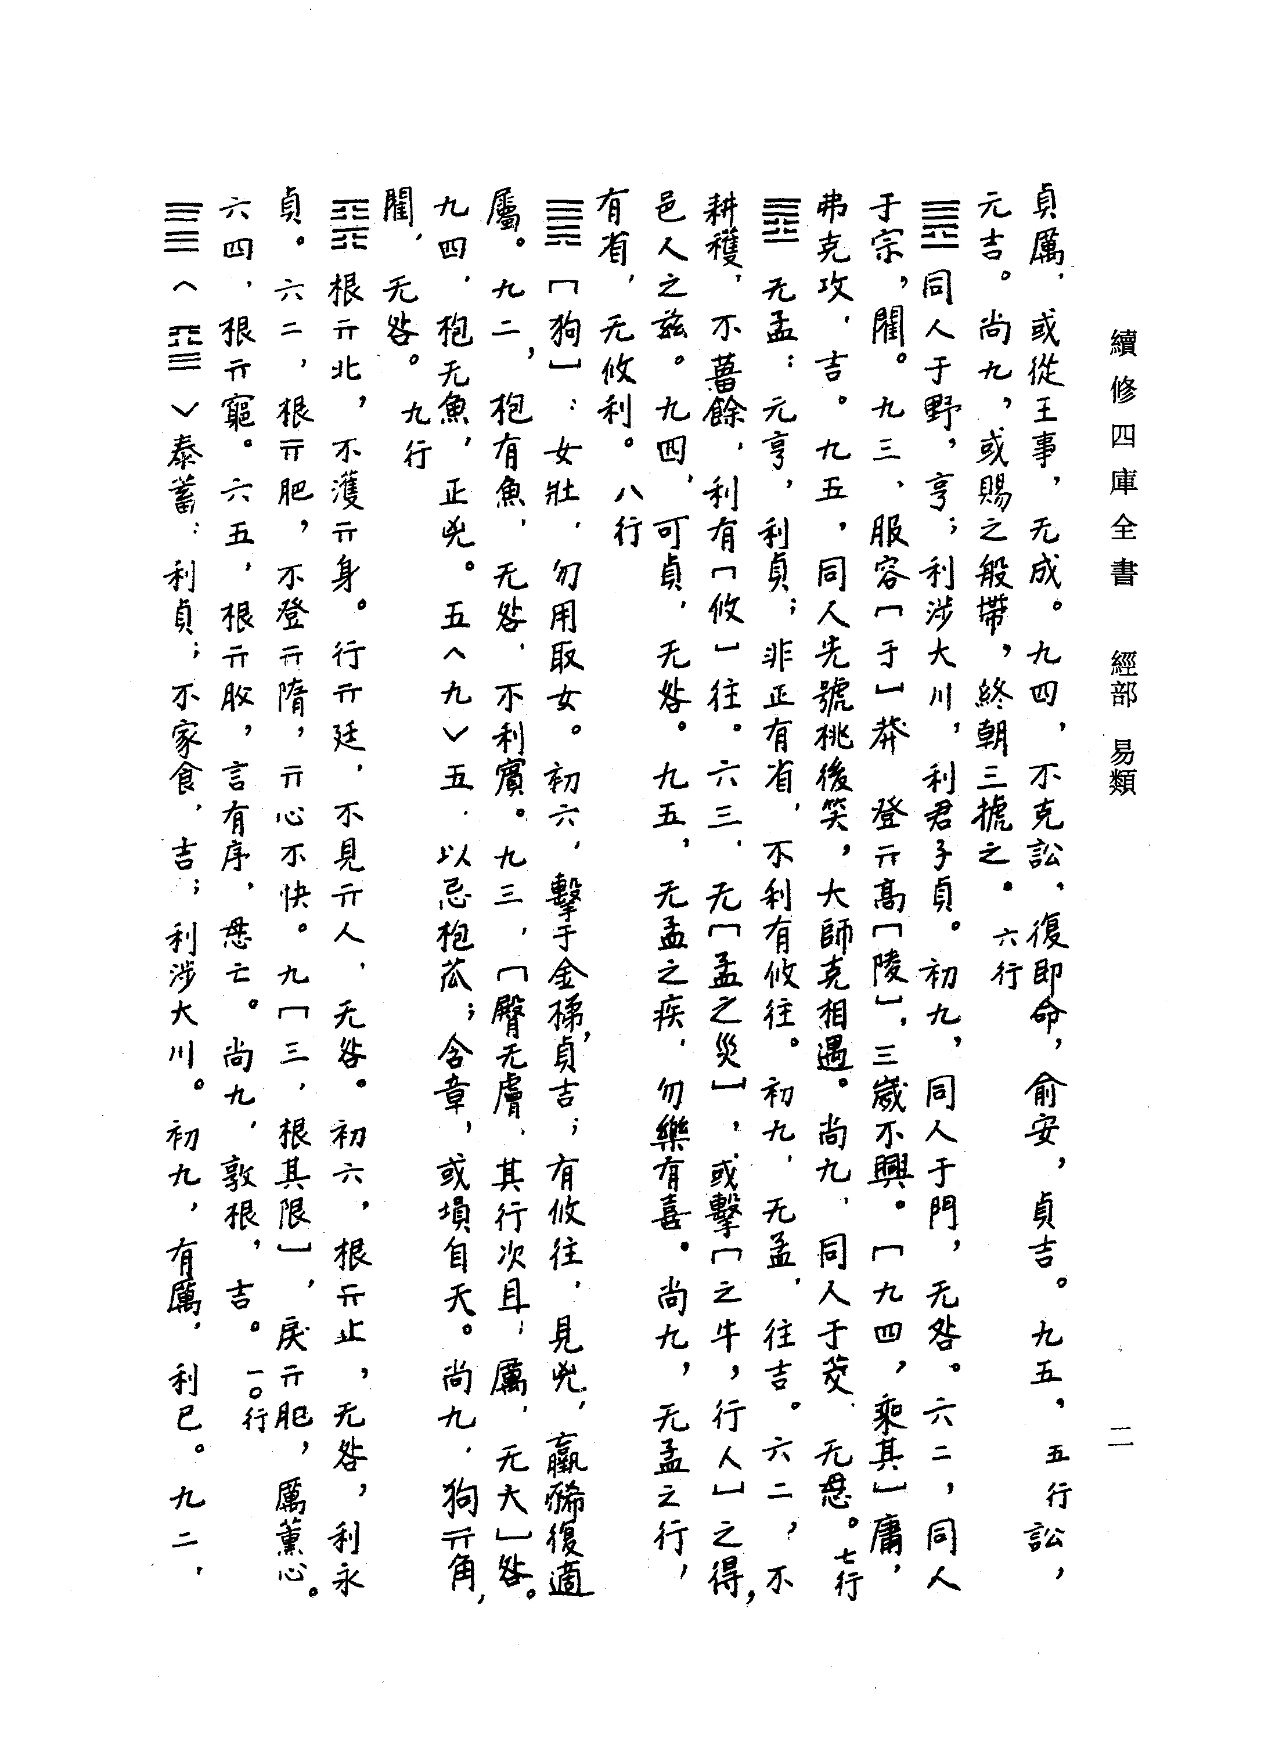 續修四庫全書　經部　易類
二
貞厲，或從王事，无成。九四，不克訟，復即命，俞安，貞吉。九五，五行訟，
元吉。尚九，或賜之般帶，終朝三摅之。六行
䷌同人于野，亨；利涉大川，利君子貞。初九，同人于門，无咎。六二，同人
于宗，閵。九三，服容［于］莽　登亓高［陵］，三歲不興。［九四，乘其］庸，
弗克攻，吉。九五，同人先號桃後笑，大師克相遇。尚九，同人于茭，无悬。七行
䷘无孟：元亨，利貞；非正有省，不利有攸往。初九，无孟，往吉。六二，不
耕穫，不菑餘，利有［攸］往。六三，无［孟之災］，或擊［之牛，行人］之得，
邑人之兹。九四，可貞，无咎。九五，无孟之疾，勿樂有喜。尚九，无孟之行，
有省，无攸利。八行
䷫［狗］：女壯，勿用取女。初六，擊于金梯，貞吉；有攸往，見兇，羸豨復適
屬。九二，枹有魚，无咎，不利賓。九三，［臀无膚，其行次且；厲，无大］咎。
九四，枹无魚，正兇。五〈九〉五，以忌枹苽；含章，或塤自天。尚九，狗亓角，
閵，无咎。九行
䷳根亓北，不濩亓身。行亓廷，不見亓人，无咎。初六，根亓止，无咎，利永
貞。六二，根亓肥，不登亓隋，亓心不快。九［三，根其限］，戾亓肥，厲薰心。
六四，根亓竆。六五，根亓𦙫，言有序，悬亡。尚九，敦根，吉。一〇行
䷀〈䷙〉泰蓄：利貞；不家食，吉；利涉大川。初九，有厲，利已。九二，